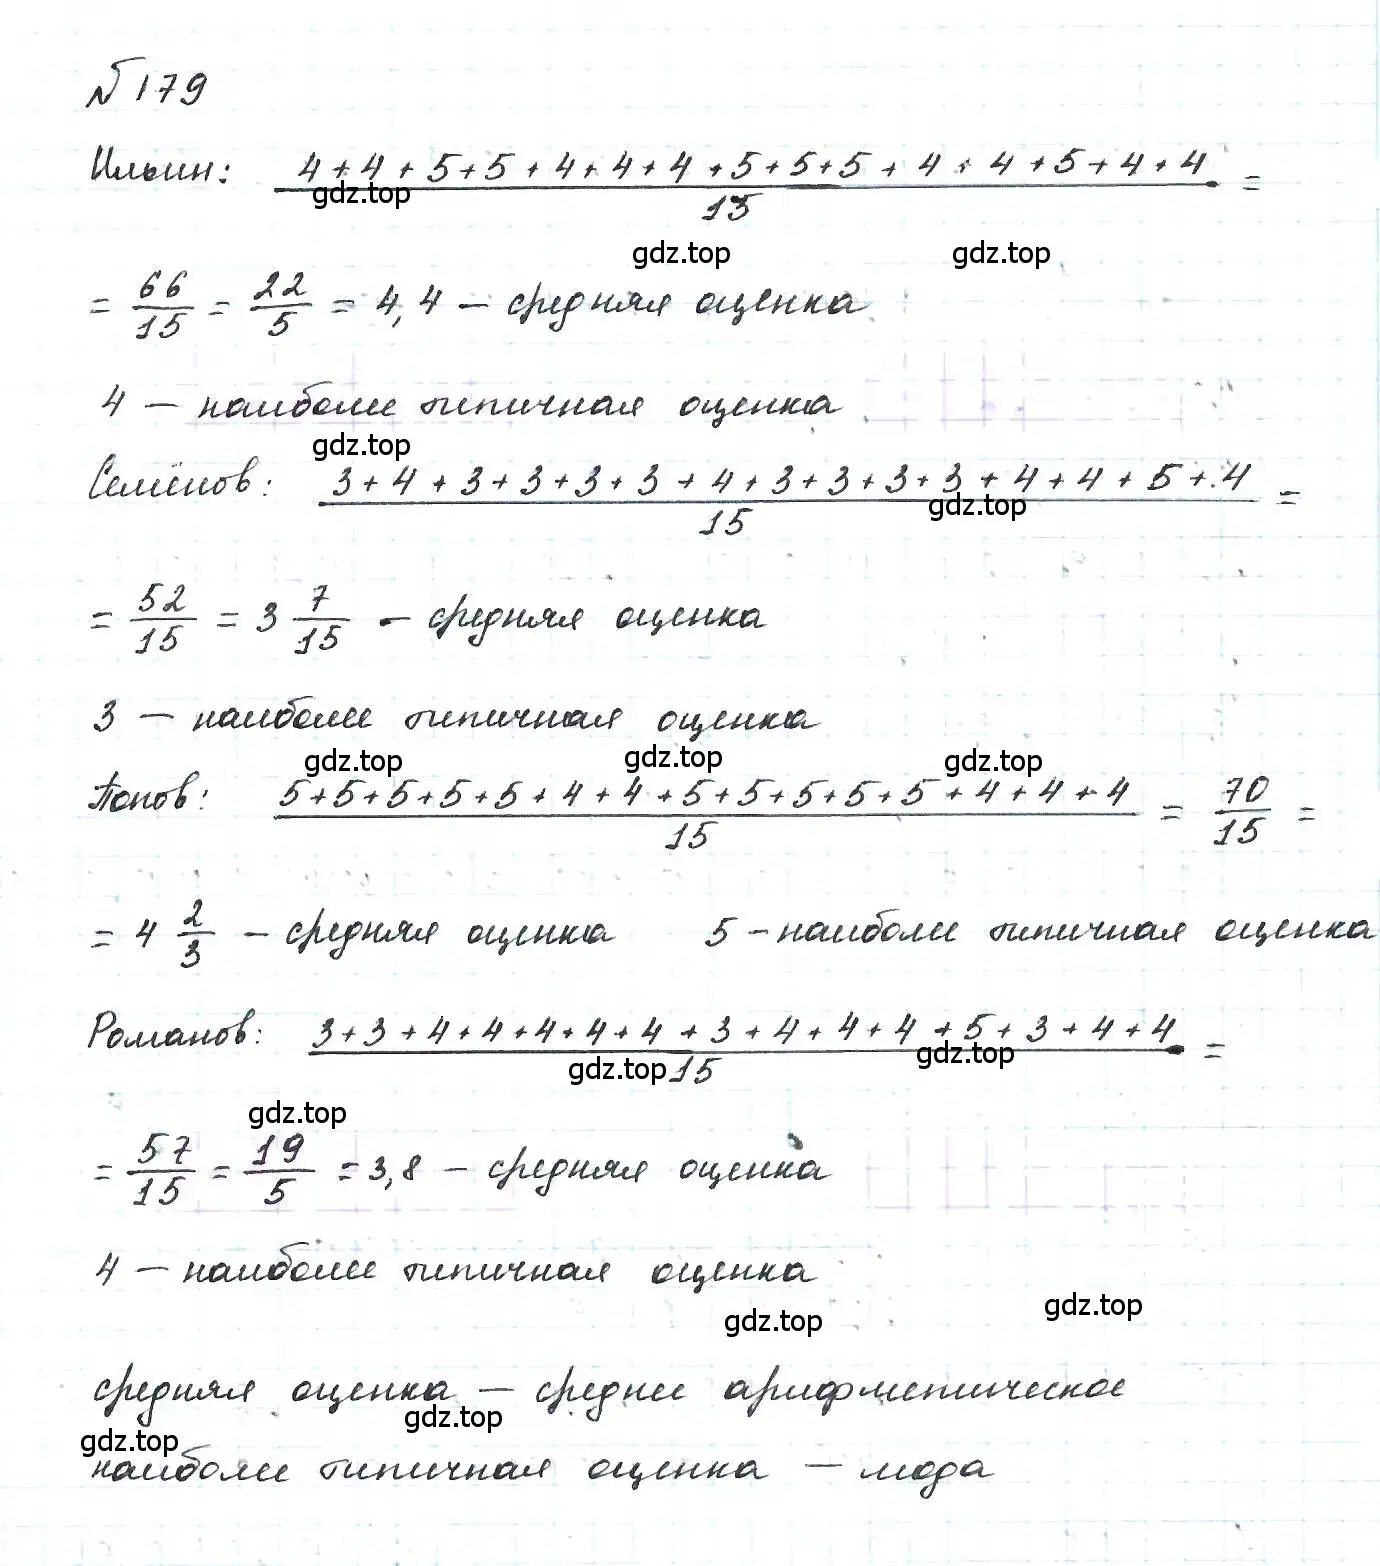 №179
Ильин: 4+4+5+5+4+4+4+5+5+5+4+4+5+4+4 =
gdz.top 15
gdz.top gdz.top
= 66/15 = 22/5 = 4,4 – средняя оценка
4 – наиболее типичная оценка
gdz.top
Семёнов: 3+4+3+3+3+3+4+3+3+3+3+4+4+5+4 =
15 gdz.top
= 52/15 = 3 7/15 – средняя оценка
3 – наиболее типичная оценка
gdz.top gdz.top gdz.top
Попов: 5+5+5+5+5+4+4+5+5+5+5+5+4+4+4 = 70/15 =
15
= 4 2/3 – средняя оценка 5 – наиболее типичная оценка
Романов: 3+3+4+4+4+4+4+3+4+4+4+5+3+4+4 =
gdz.top 15 gdz.top
gdz.top
= 57/15 = 19/5 = 3,8 – средняя оценка
4 – наиболее типичная оценка
gdz.top gdz.top
средняя оценка – среднее арифметическое
gdz.top gdz.top
наиболее типичная оценка – мода